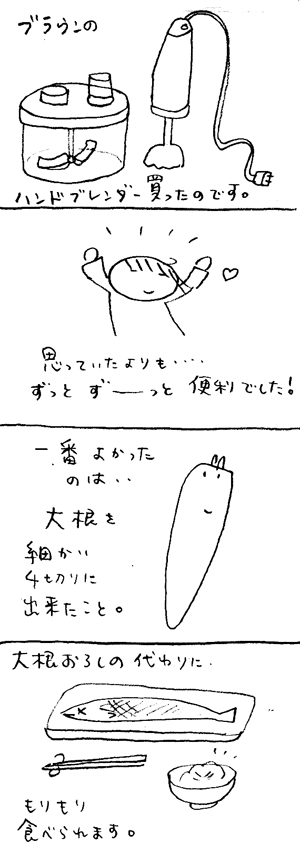 ブラウンの
ハンドブレンダー買ったのです。
思っていたよりも・・・・
ずっと ずーーっと 便利でした!
一番 よかった
のは・・
大根を
細かい
4切りに
出来たこと。
大根おろしの 代わりに・
もりもり
食べられます。